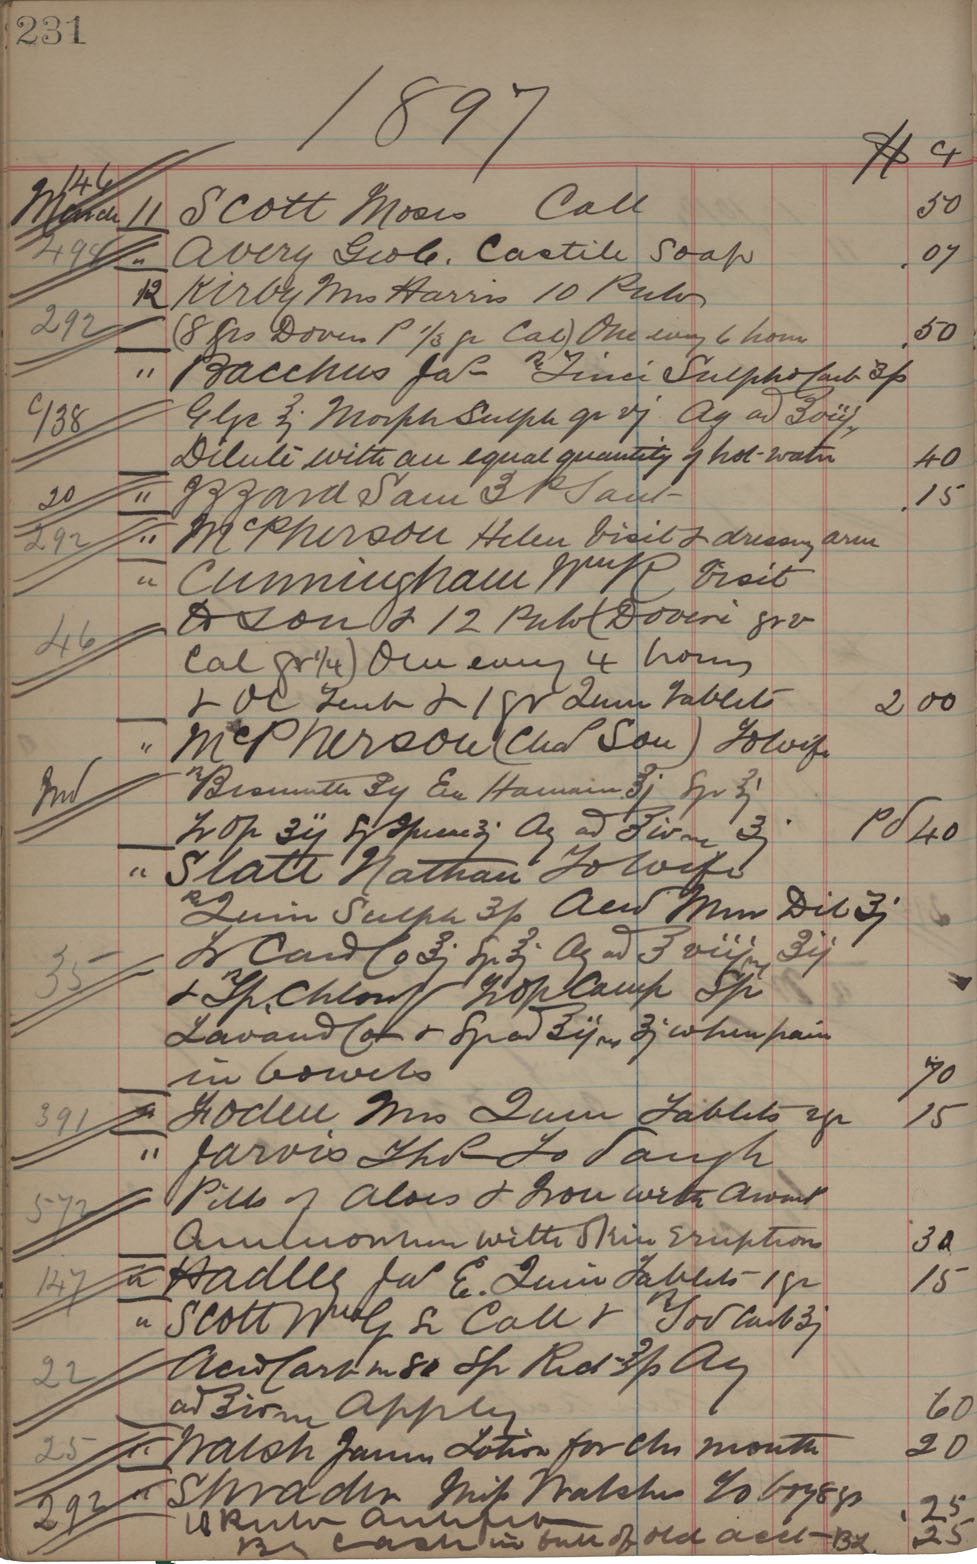 231
1897
$ ct
146
March 11 Scott Moses Call 50
498 " Avery Geo C. Castile Soap .07
12 Kirby Mrs Harris 10 Pulv
292 (8 grs Dovers P 1/3 gr Cal) One every 6 hours .50
" Bacchus Jas Rx Zinci Sulpho Carb
C/138 Glyc Morph Sulph gr vj Aq ad ℥viij
Dilute with an equal quantity of hot-water 40
20 " Izzard Sam .15
292 " McPherson Helen Visit & dressing arm
" Cunningham Wm R Visit
46 to Son & 12 Pulv (Doveri gr v
Cal gr 1/4) One every 4 hours
& 1 gr Quin Tablets 2 00
" McPherson (Chas Son) To wife
Ind Rx Bismuth Ex Hamam
Pd 40
" Slatt Nathan To wife
Rx Quin Sulph Acid Mur Dil ℥j
35 Tr Card Co Aq ad ℥viij
& Rx Sp. Chlorof Tr Op Camp Sp
Lavand Co & when pain
in bowels 70
391 " Foden Mrs Quin Tablets 2gr 15
" Jarvis Thos To Daugh
572 Pills of Aloes & Iron with
with Skin Eruptions 30
147 " Hadley Jas E. Quin Tablets 1 gr 15
" Scott Wm G Sr Call & Rx
22 Acid Carb m 80 Sp Rect Aq
ad Apply 60
25 " Walsh James Lotion for Chs mouth 20
292 " Shrader Miss Walshs To boy 8 yr
Pulv .25
By Cash in full of old acct 25